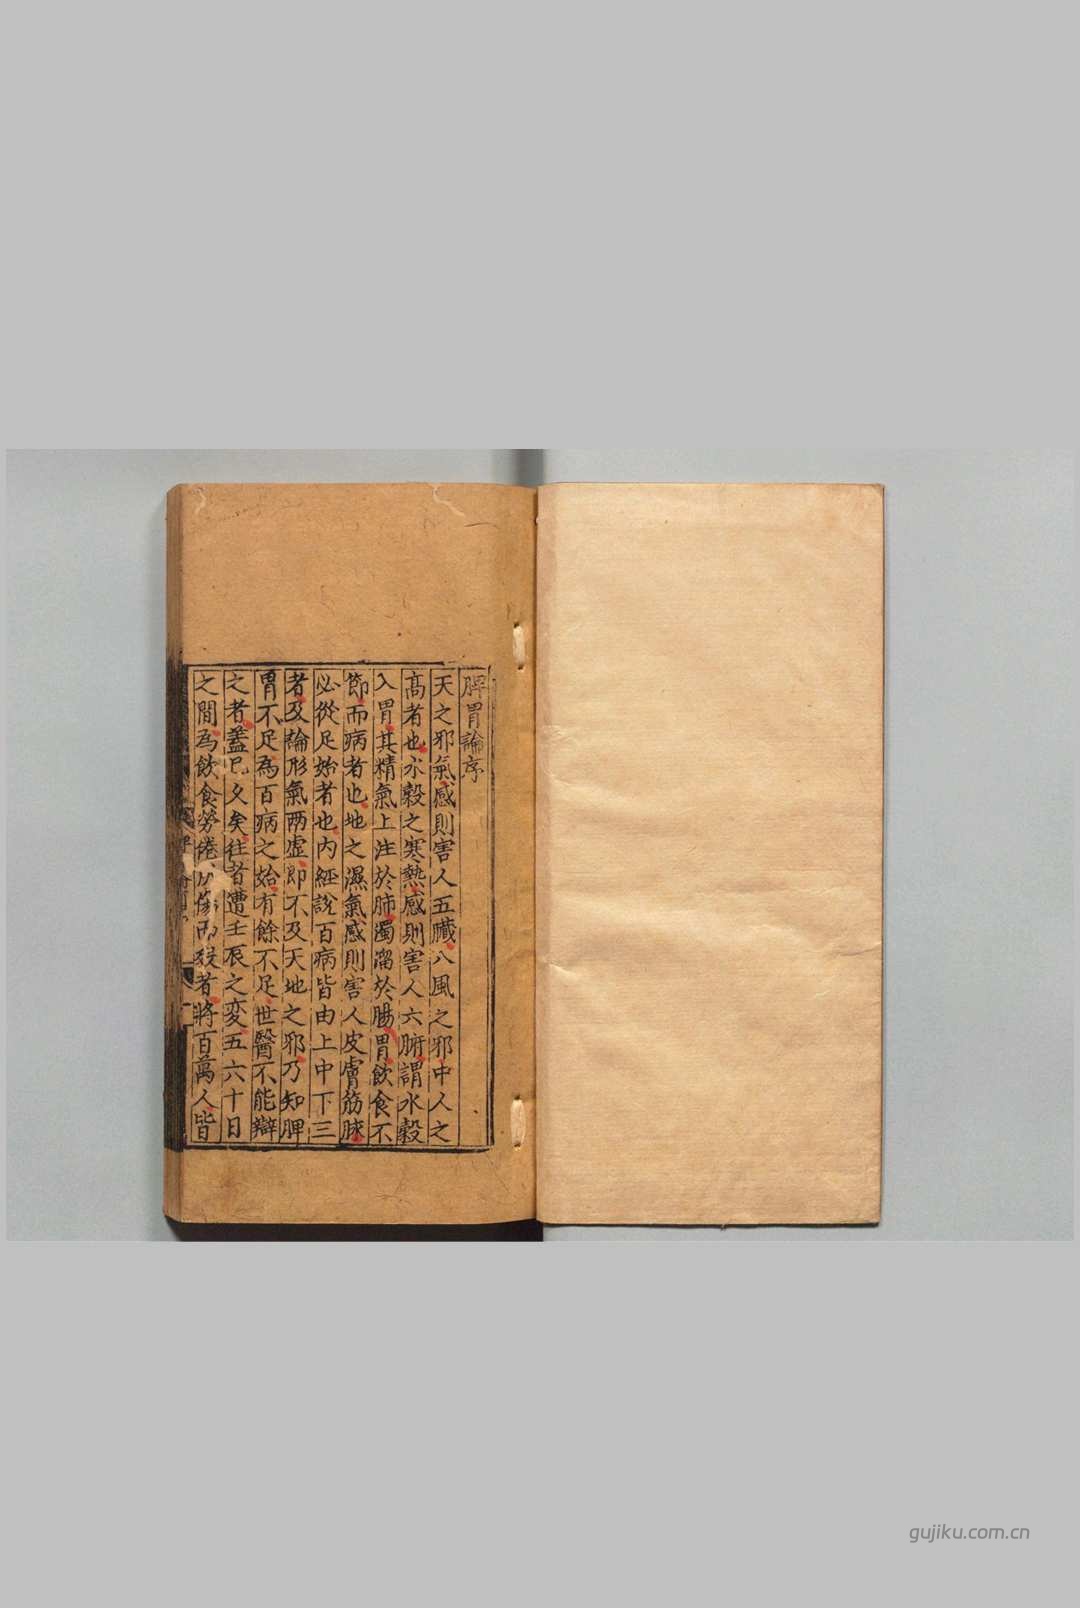 脾胃論序
天之邪氣感則害人五臓八風之邪中人之
高者也水穀之寒熱感則害人六腑謂水穀
入胃其精氣上注於肺濁溜於腸胃飲食不
節而病者也地之濕氣感則害人皮膚筋脉
必從足始者也内經說百病皆由上中下三
者及論形氣两虚即不及天地之邪乃知脾
胃不足為百病之始有餘不足世醫不能辯
之者盖已久矣往者遭壬辰之変五六十日
之間為飲食勞倦所傷而殁者將百萬人皆
gujiku.com.cn